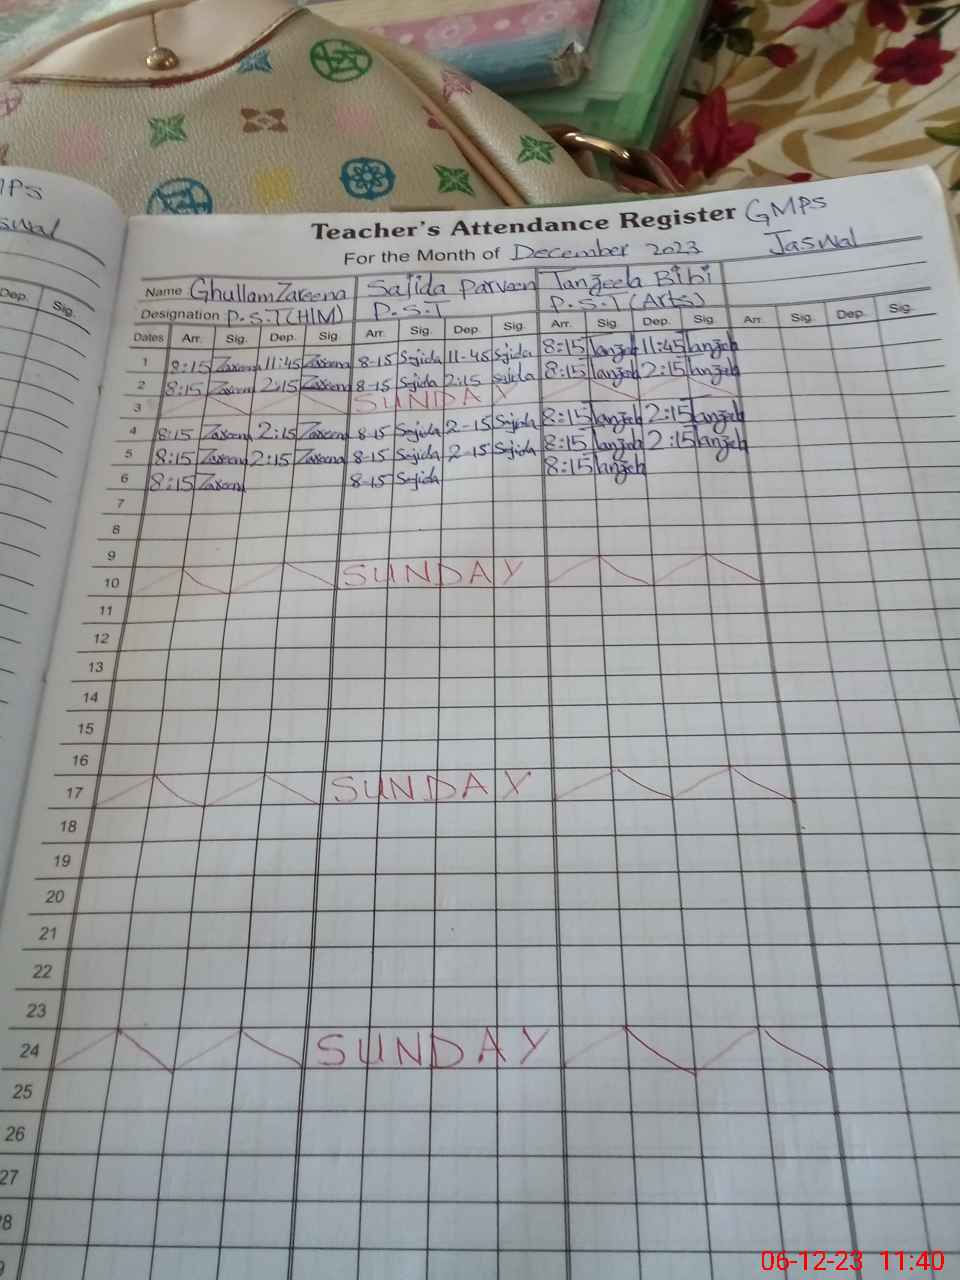 MPS
Teacher's Attendance Register GMPS
For the Month of December 2023 Jaswal
Name Ghullam Zareena Sajida Parveen Tanzeela Bibi
Designation P.S.T(H/M) P.S.T P.S.T(Arts)
Dep. Sig.
Dates Arr. Sig. Dep. Sig. Arr. Sig. Dep. Sig. Arr. Sig. Dep. Sig. Arr. Sig. Dep. Sig.
1 8:15 Zareena 11:45 Zareena 8-15 Sajida 11-45 Sajida 8:15 Tanzeeb 11:45 Tanzeeb
2 8:15 Zareena 2:15 Zareena 8-15 Sajida 2:15 Sajida 8:15 Tanzeeb 2:15 Tanzeeb
3 SUNDAY
4 8:15 Zareena 2:15 Zareena 8-15 Sajida 2-15 Sajida 8:15 Tanzeeb 2:15 Tanzeeb
5 8:15 Zareena 2:15 Zareena 8-15 Sajida 2-15 Sajida 8:15 Tanzeeb 2:15 Tanzeeb
6 8:15 Zareena 8-15 Sajida 8:15 Tanzeeb
7
8
9
10 SUNDAY
11
12
13
14
15
16
17 SUNDAY
18
19
20
21
22
23
24 SUNDAY
25
26
27
28
06-12-23 11:40